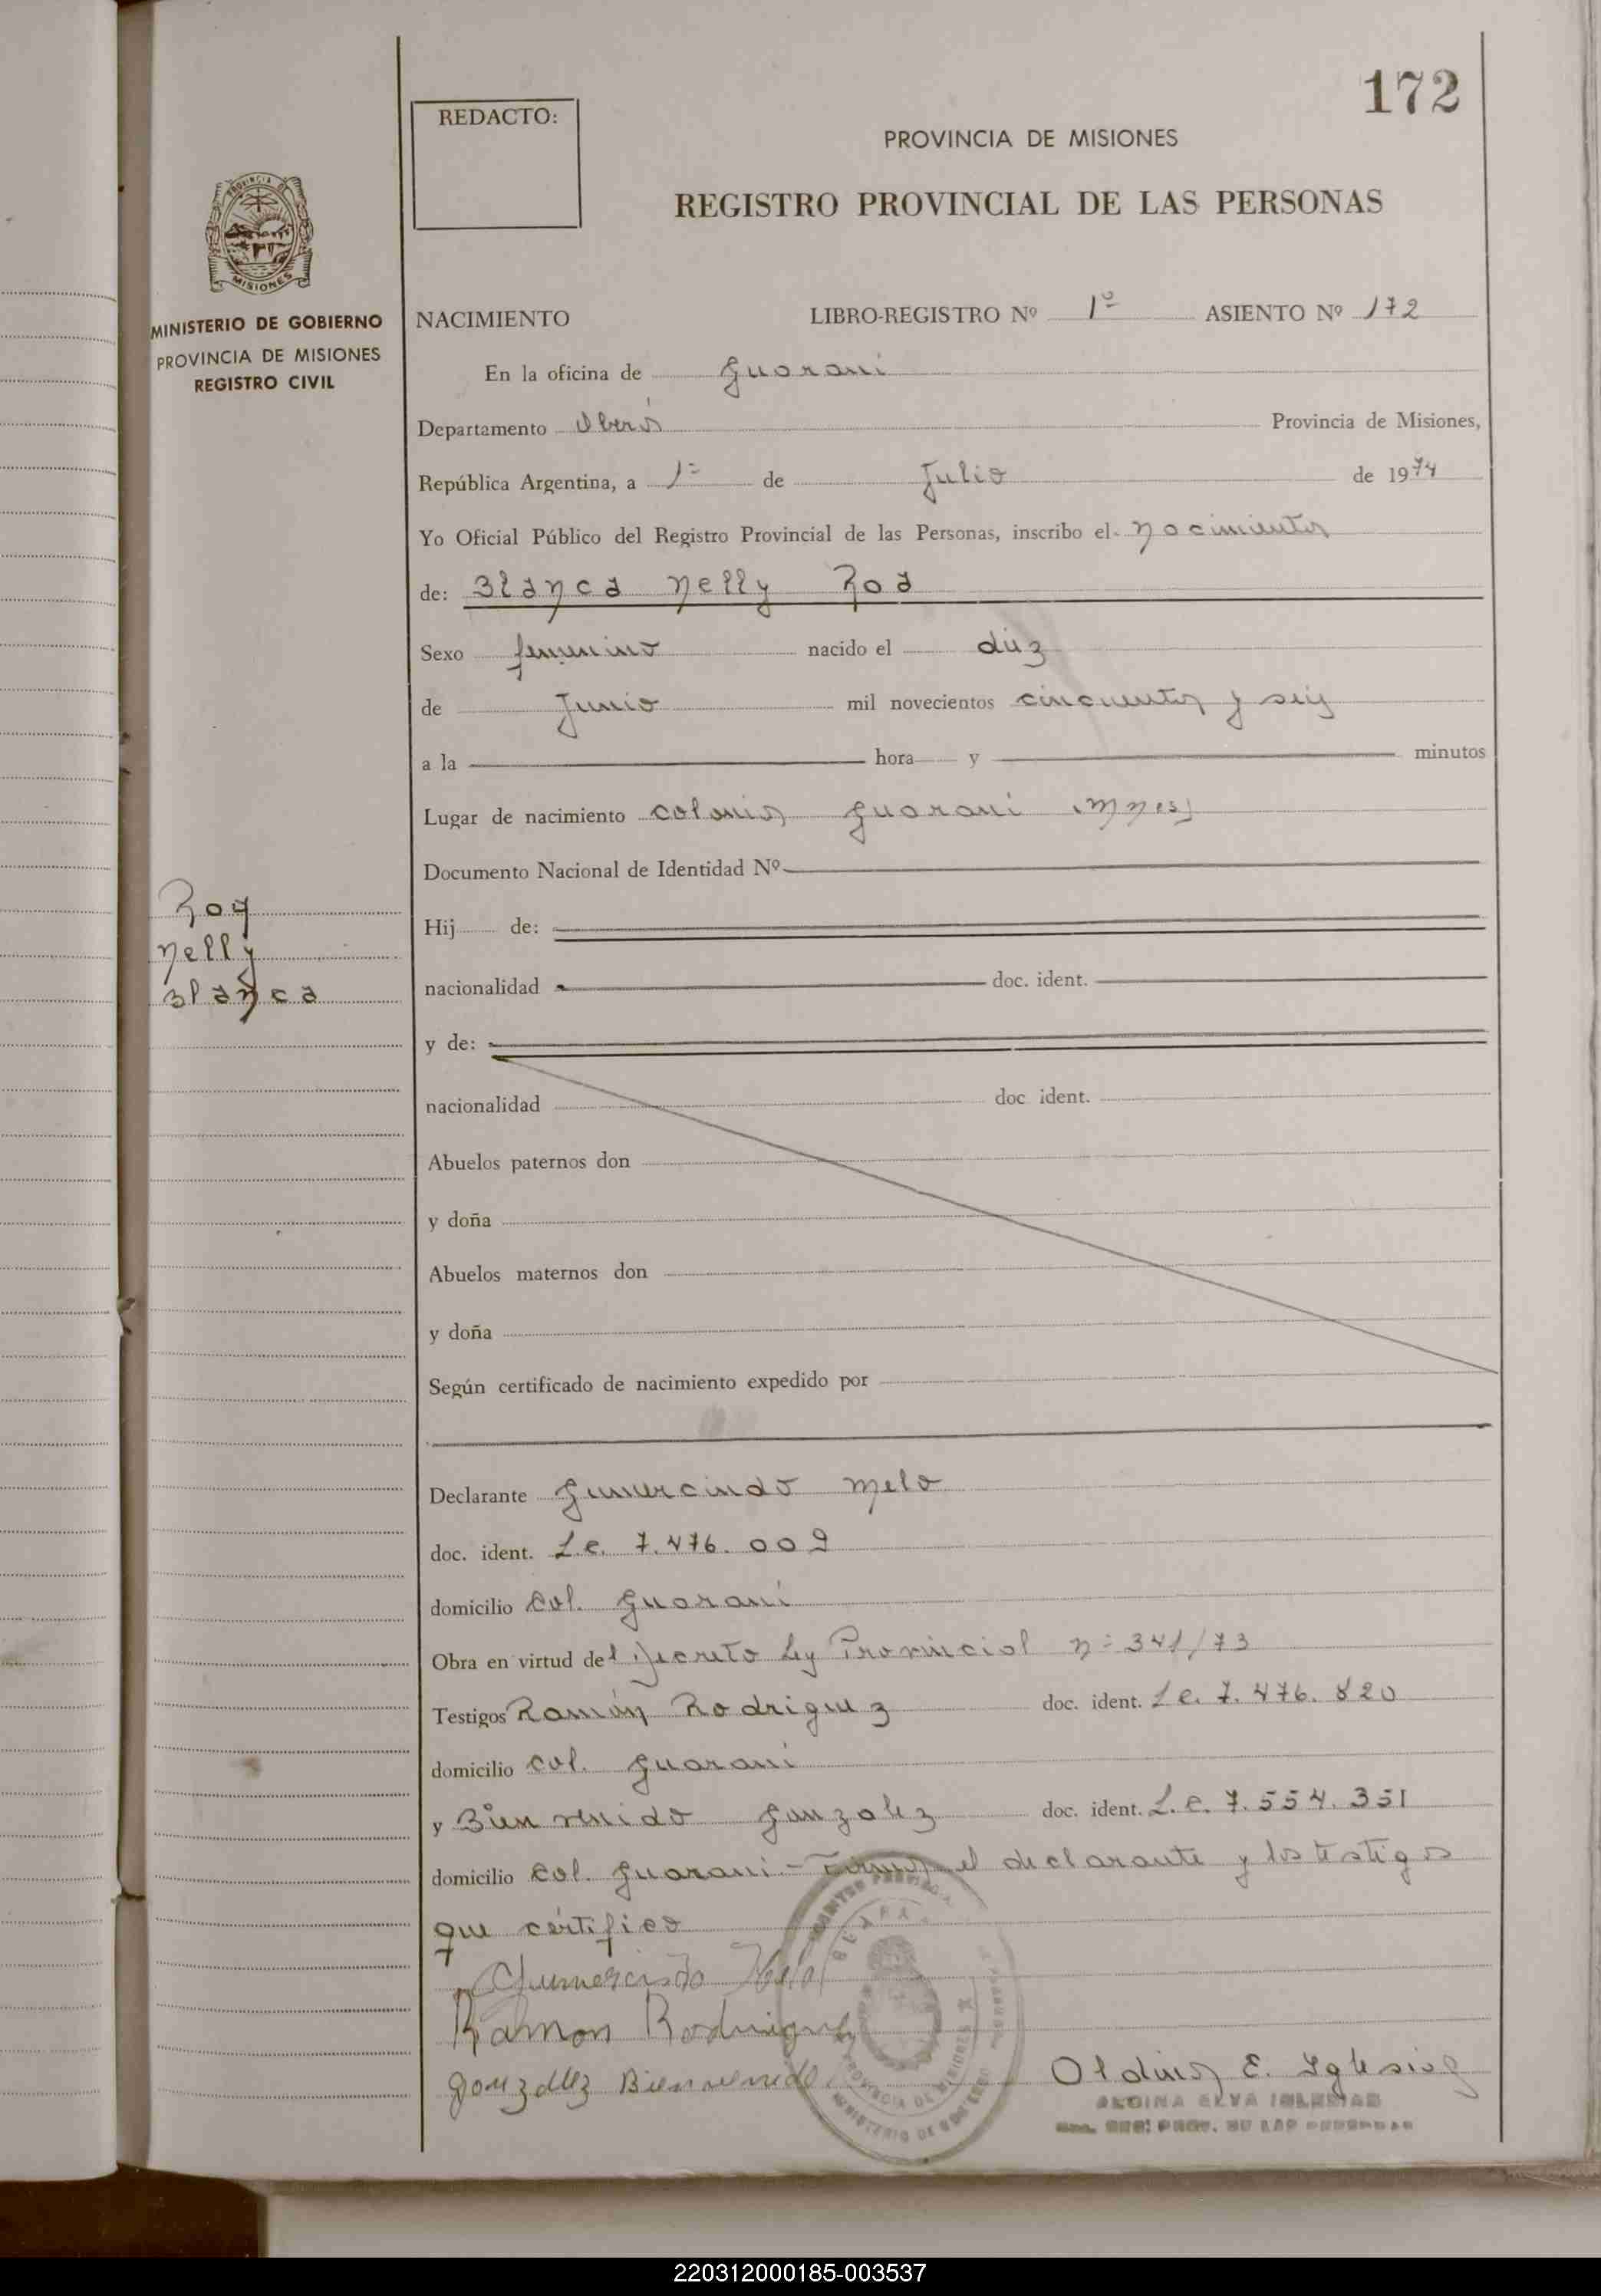 172
REDACTO:
PROVINCIA DE MISIONES
REGISTRO PROVINCIAL DE LAS PERSONAS
PROVINCIA DE
MISIONES
MINISTERIO DE GOBIERNO
PROVINCIA DE MISIONES
REGISTRO CIVIL
NACIMIENTO LIBRO-REGISTRO Nº 1º ASIENTO Nº 172
En la oficina de Guaraní
Departamento Oberá Provincia de Misiones,
República Argentina, a 1º de Julio de 1974
Yo Oficial Público del Registro Provincial de las Personas, inscribo el nacimiento
de: Blanca Nelly Roa
Sexo femenino nacido el diez
de Junio mil novecientos cincuenta y seis
a la hora y minutos
Lugar de nacimiento colonia Guaraní (Mnes)
Documento Nacional de Identidad Nº
Roa
Nelly
Blanca
Hij de:
nacionalidad doc. ident.
y de:
nacionalidad doc ident.
Abuelos paternos don
y doña
Abuelos maternos don
y doña
Según certificado de nacimiento expedido por
Declarante Gumercindo Melo
doc. ident. L.e. 7.476.009
domicilio Col. Guaraní
Obra en virtud del Decreto Ley Provincial nº 341/73
Testigos Ramón Rodriguez doc. ident. L e. 7.476.820
domicilio col. Guaraní
y Bienvenido Gonzalez doc. ident. L.e. 7.554.351
domicilio Col. Guaraní - Firman el declarante y los testigos
que certifico
Gumercindo Melo
Ramon Rodriguez
Gonzalez Bienvenido
Oldina E. Iglesias
ELVA IGLESIAS
PROVINCIA DE MISIONES
MINISTERIO DE GOBIERNO
220312000185-003537